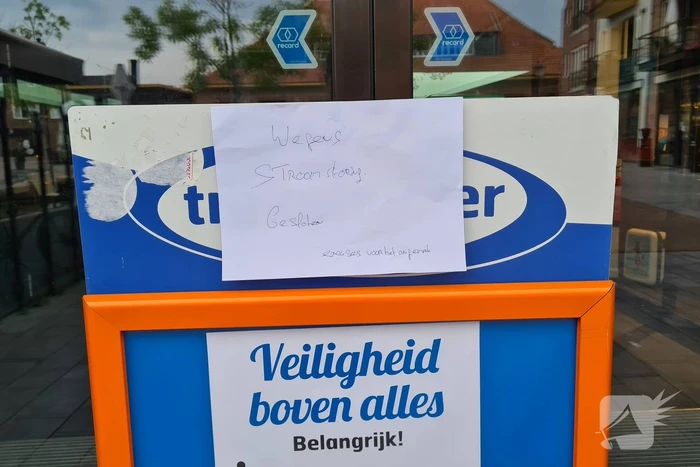 record
record
Wegens
Stroomstoring
Gesloten
excuses voor het ongemak
tr
er
Veiligheid
boven alles
Belangrijk!